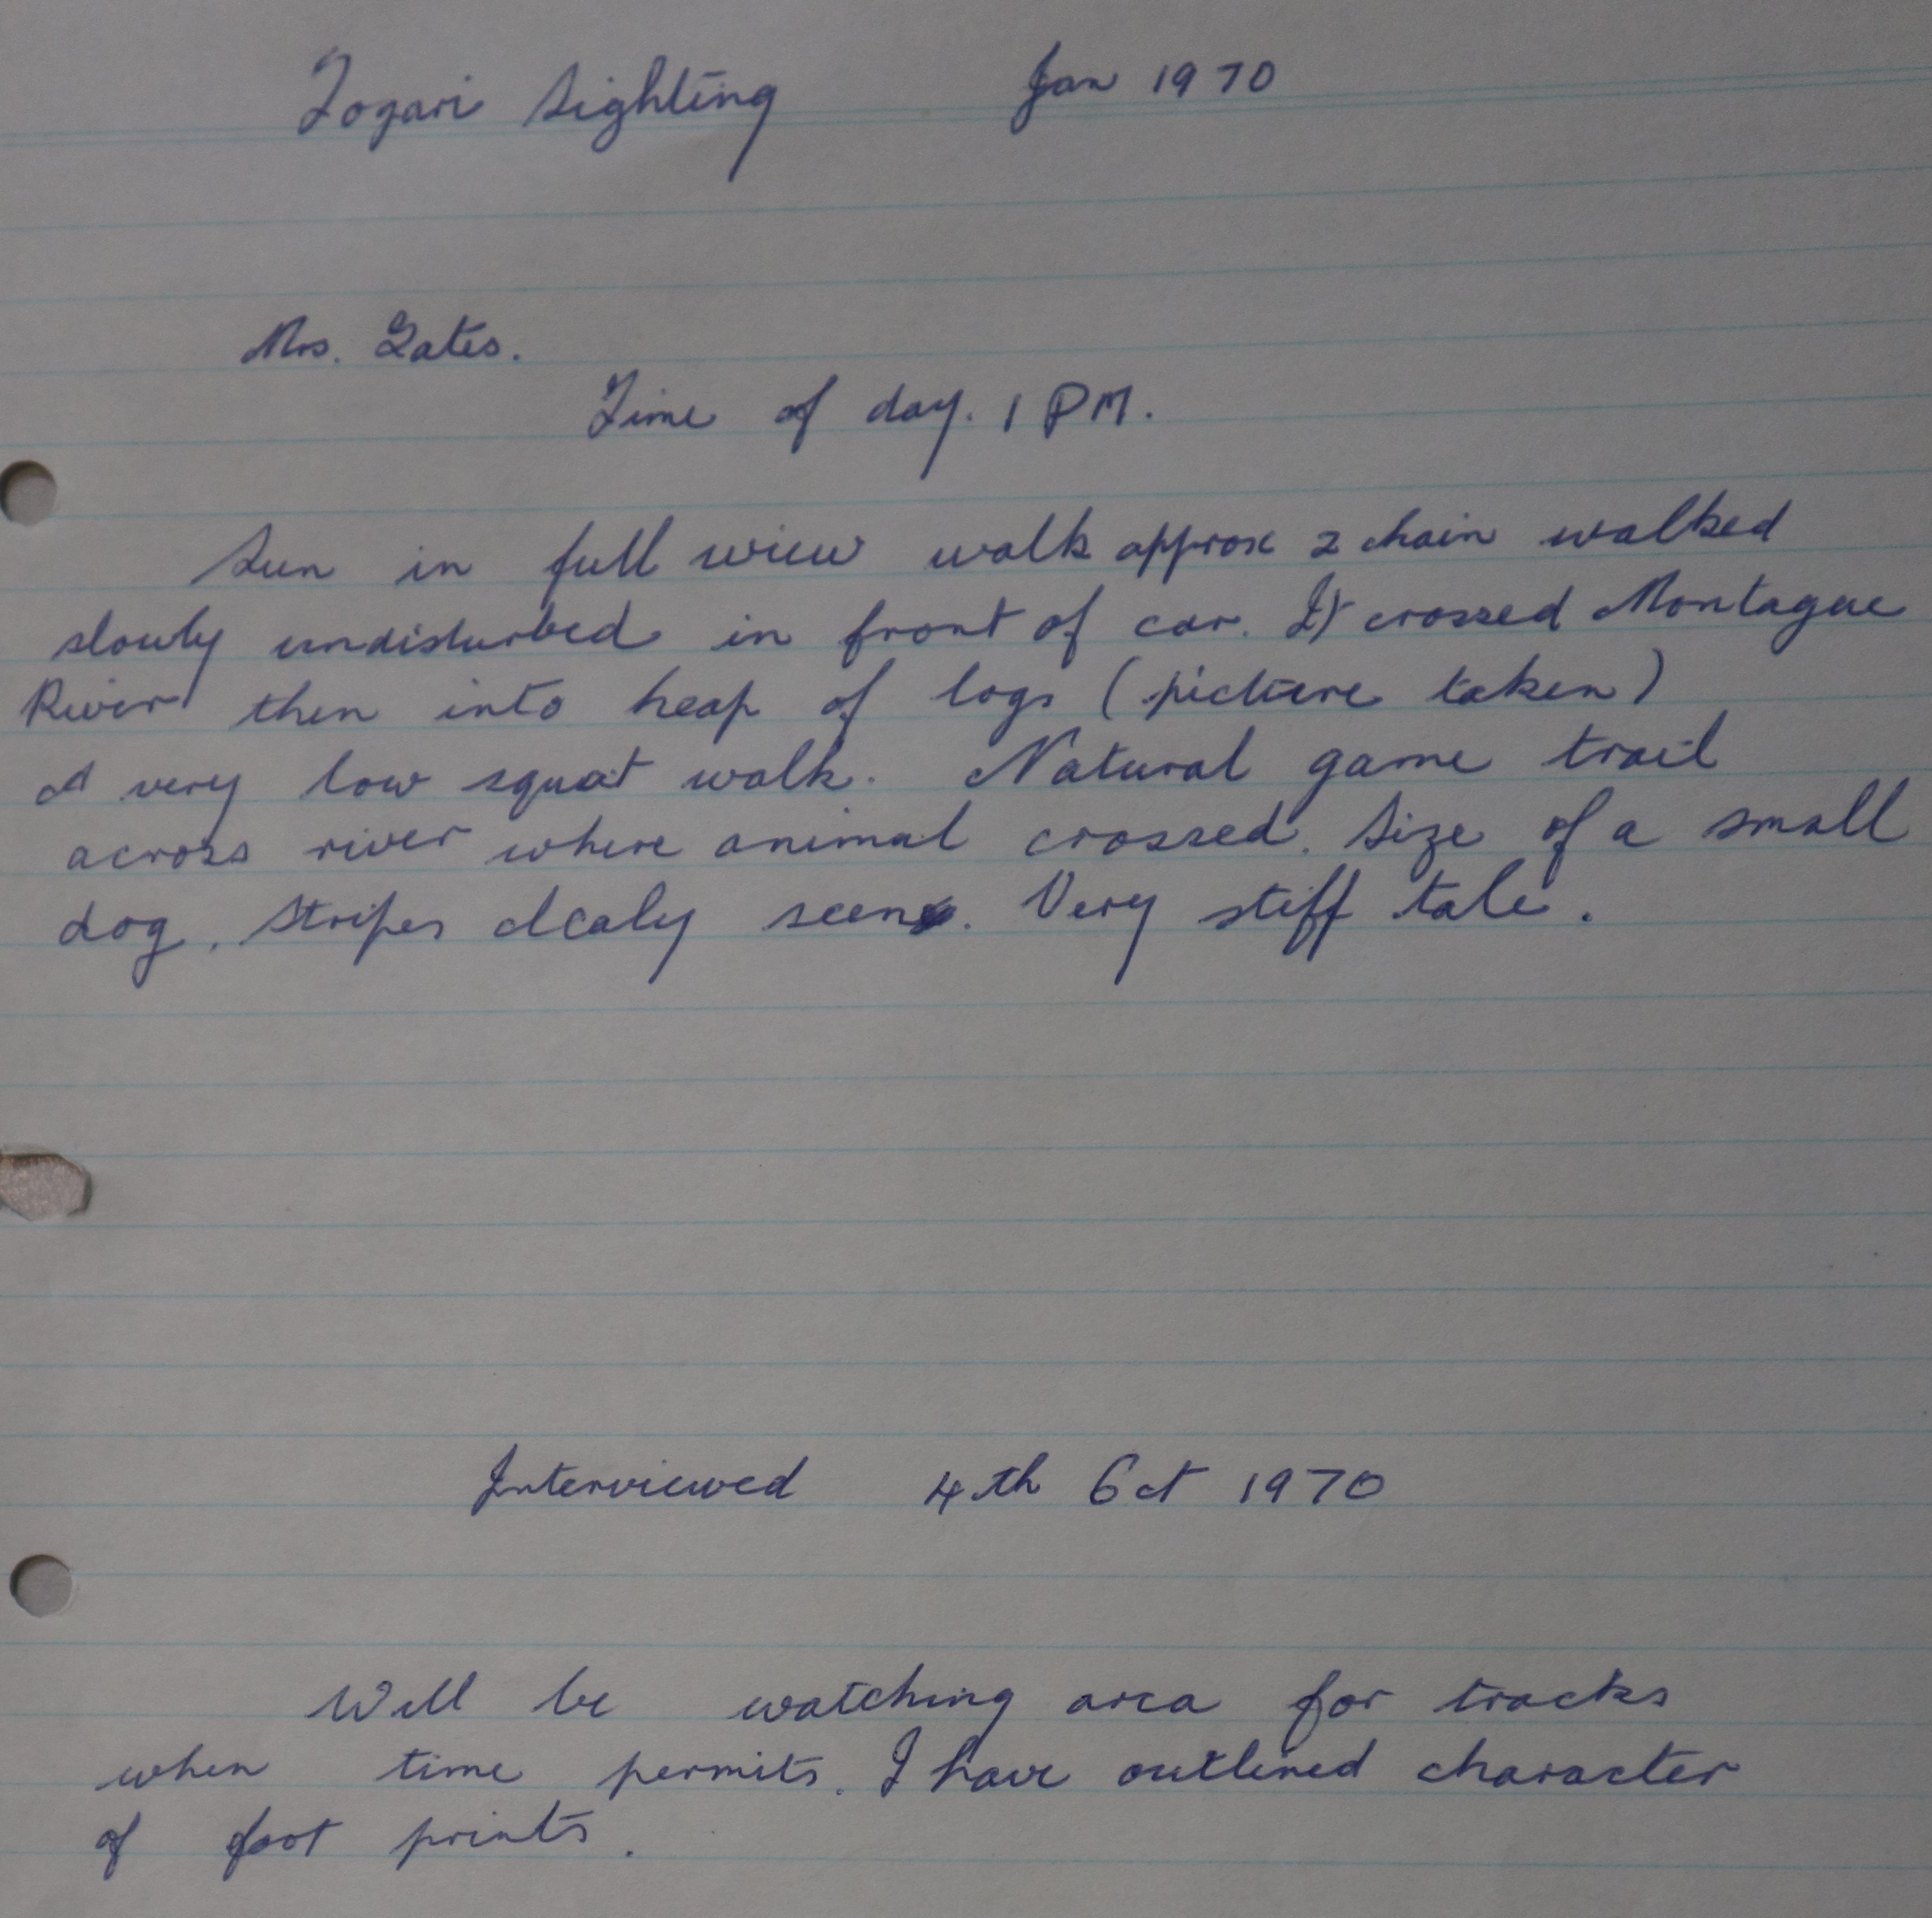 Togari Sighting Jan 1970
Mrs. Gates.
Time of day. 1 PM.
Sun in full wiew walk approx 2 chain walked
slowly undisturbed in front of car. It crossed Montague
River then into heap of logs (picture taken)
A very low squat walk. Natural game trail
across river where animal crossed. Size of a small
dog, stripes clealy seen. Very stiff tale.
Interviewed 4th Oct 1970
Will be watching area for tracks
when time permits. I have outlined character
of foot prints.